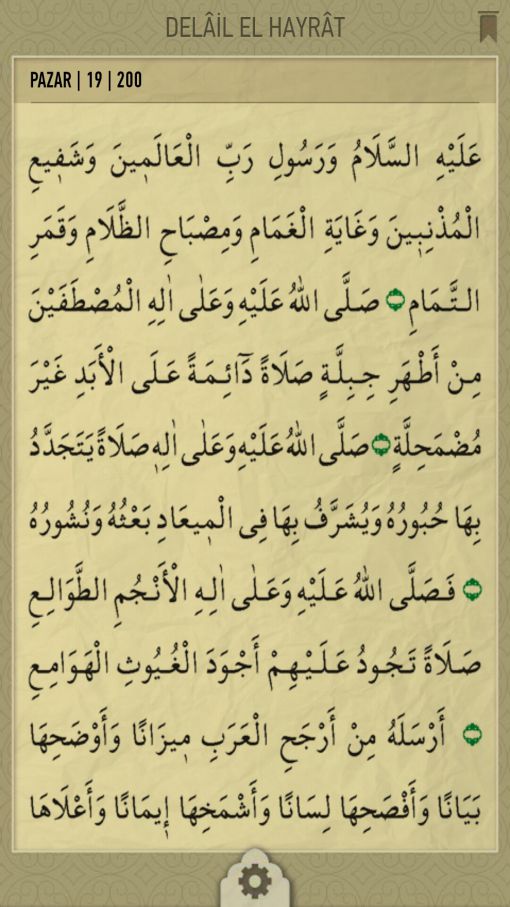 DELÂİL EL HAYRÂT
PAZAR | 19 | 200
عَلَيْهِ السَّلَامُ وَرَسُولِ رَبِّ الْعَالَمِينَ وَشَفِيعِ
الْمُذْنِبِينَ وَغَايَةِ الْغَمَامِ وَمِصْبَاحِ الظَّلَامِ وَقَمَرِ
التَّمَامِ ۝ صَلَّى اللهُ عَلَيْهِ وَعَلٰى اٰلِهِ الْمُصْطَفَيْنَ
مِنْ أَطْهَرِ جِبِلَّةٍ صَلَاةً دَآئِمَةً عَلَى الْأَبَدِ غَيْرَ
مُضْمَحِلَّةٍ ۝ صَلَّى اللهُ عَلَيْهِ وَعَلٰى اٰلِهِ صَلَاةً يَتَجَدَّدُ
بِهَا حُبُورُهُ وَيُشَرَّفُ بِهَا فِى الْمِيعَادِ بَعْثُهُ وَنُشُورُهُ
۝ فَصَلَّى اللهُ عَلَيْهِ وَعَلٰى اٰلِهِ الْأَنْجُمِ الطَّوَالِعِ
صَلَاةً تَجُودُ عَلَيْهِمْ أَجْوَدَ الْغُيُوثِ الْهَوَامِعِ
۝ أَرْسَلَهُ مِنْ أَرْجَحِ الْعَرَبِ مِيزَانًا وَأَوْضَحِهَا
بَيَانًا وَأَفْصَحِهَا لِسَانًا وَأَشْمَخِهَا إِيمَانًا وَأَعْلَاهَا